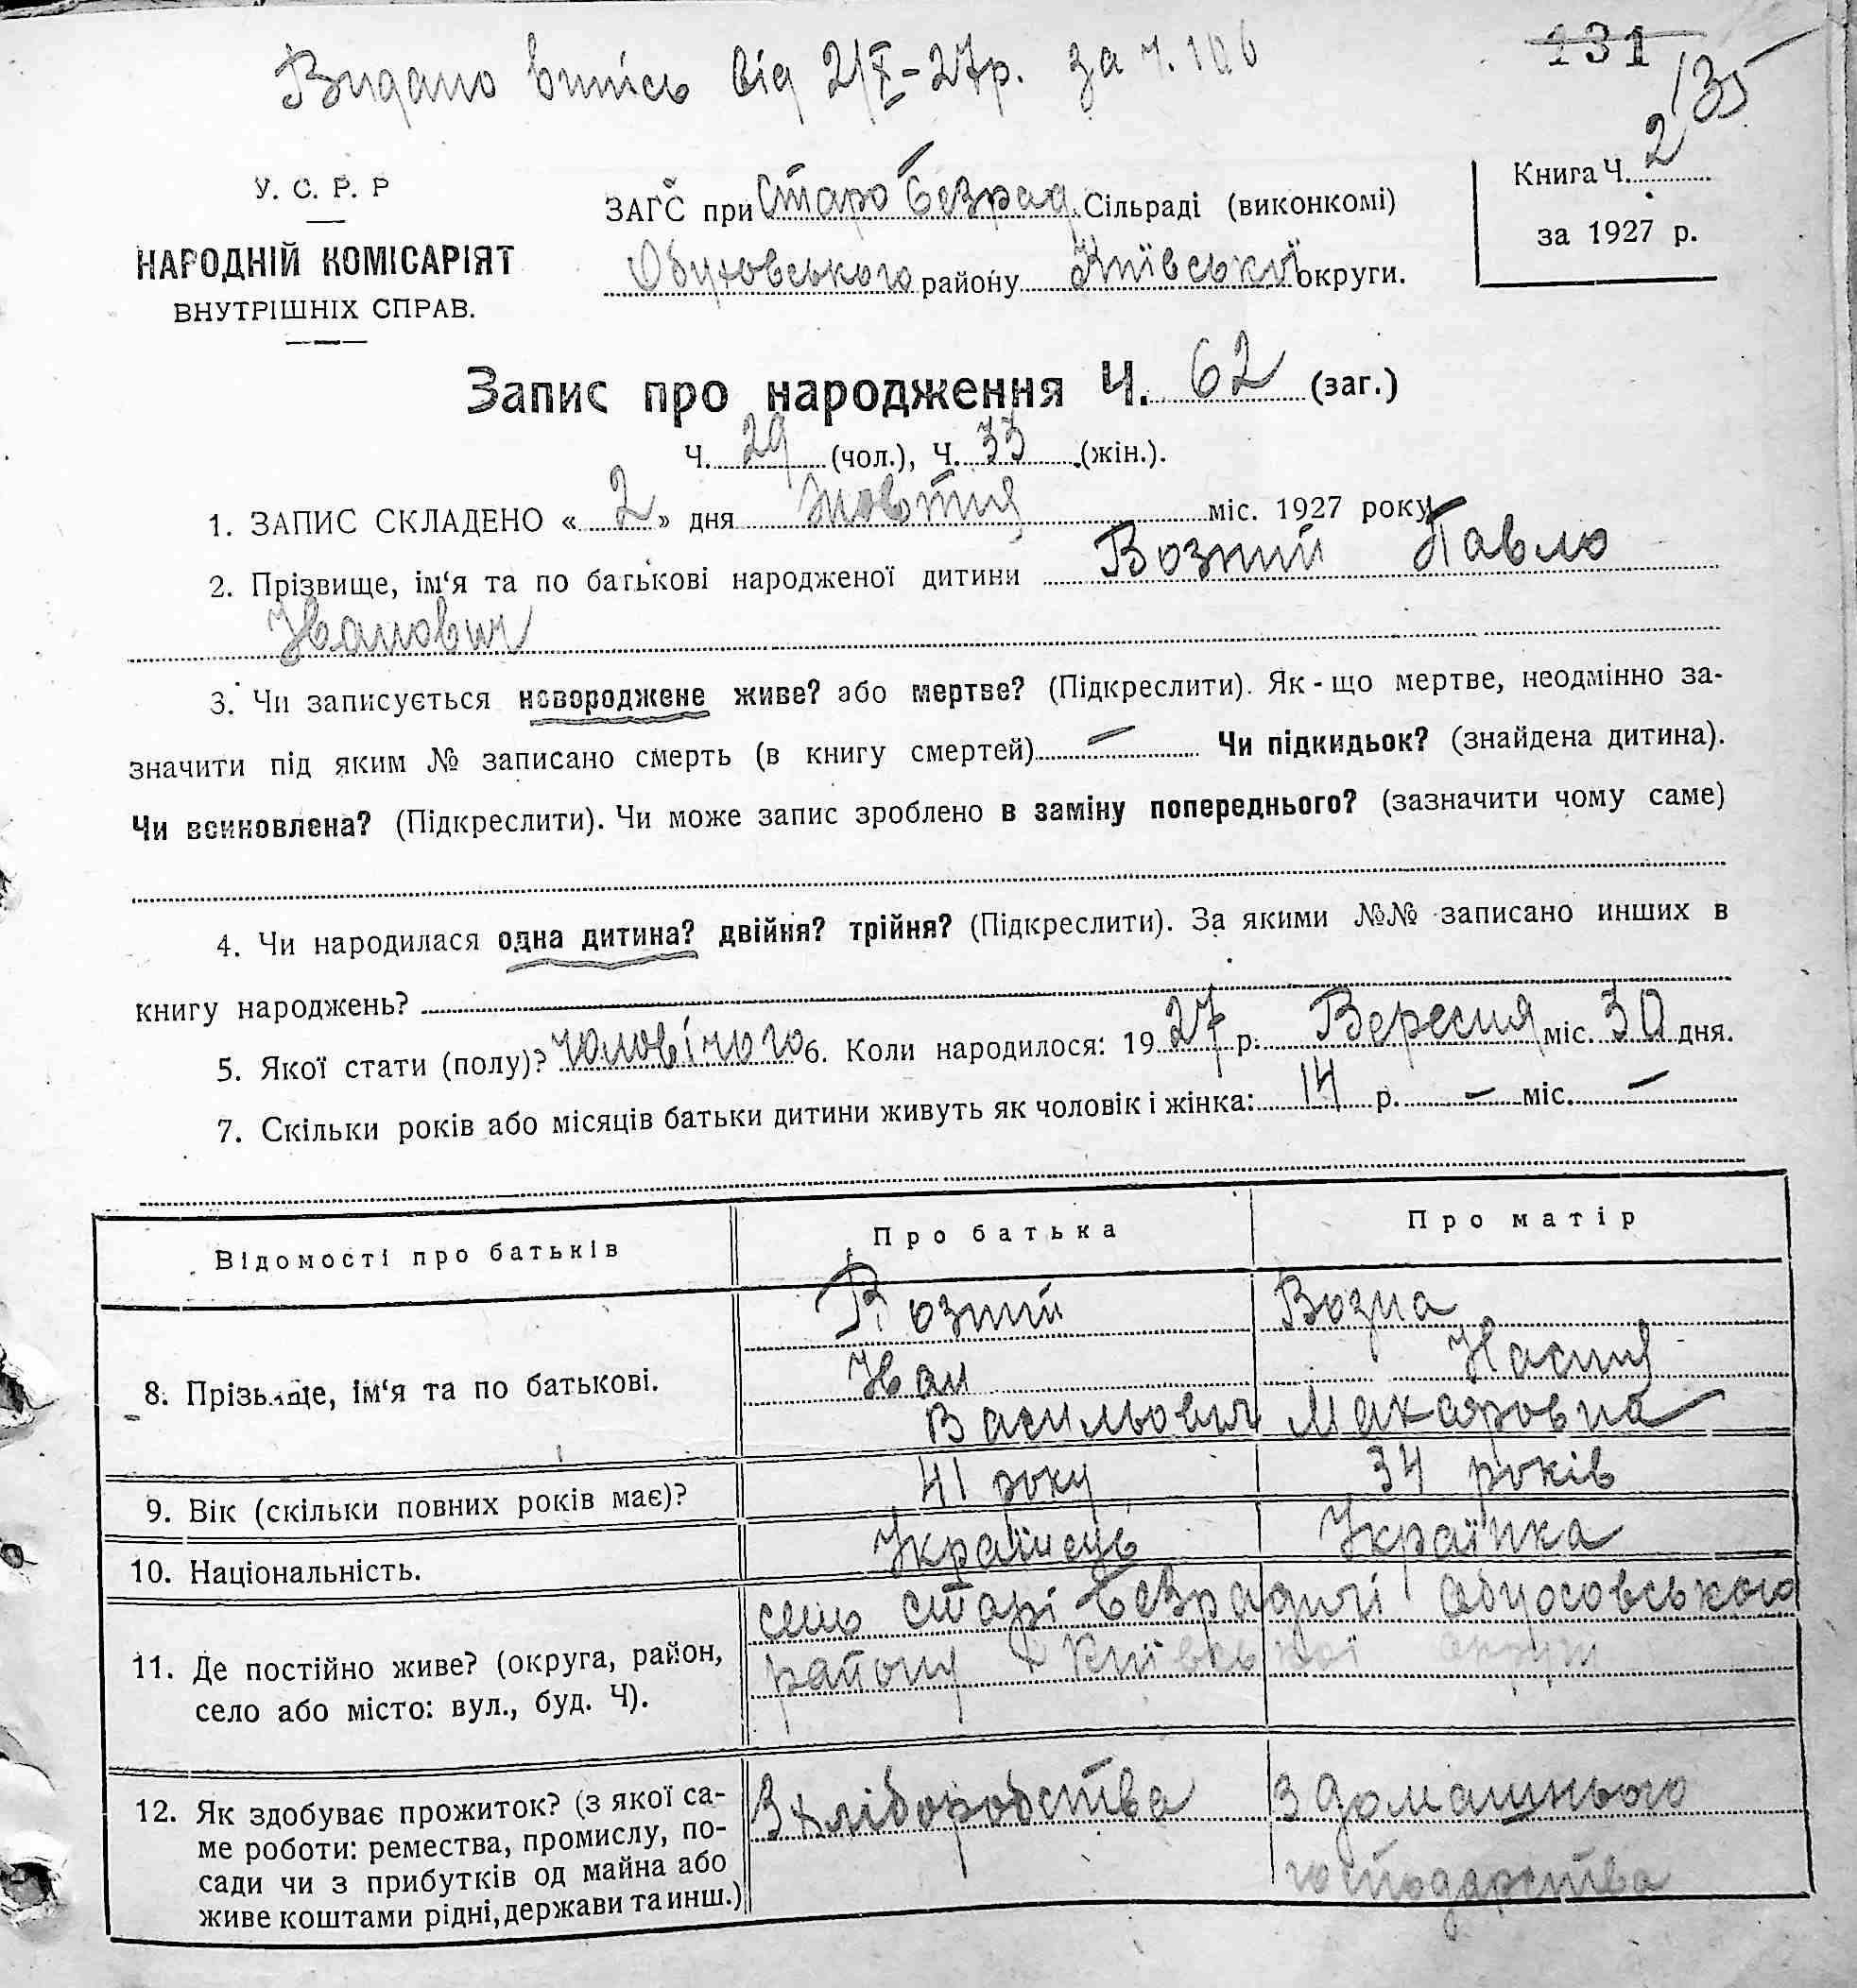 Видано витпись від 2/X-27р. за ч. 106
131
135
У. С. Р. Р
НАРОДНІЙ КОМІСАРІЯТ
ВНУТРІШНІХ СПРАВ.
ЗАГС при Старо Безрад. Сільраді (виконкомі)
Обуховського району Київської округи.
Книга Ч. 2
за 1927 р.
Запис про народження Ч. 62 (заг.)
Ч. 29 (чол.), Ч. 33 (жін.).
1. ЗАПИС СКЛАДЕНО « 2 » дня Жовтня міс. 1927 року
2. Прізвище, ім‘я та по батькові народженої дитини Возний Павло
Іванович
3. Чи записується новороджене живе? або мертве? (Підкреслити). Як-що мертве, неодмінно за-
значити під яким № записано смерть (в книгу смертей) — Чи підкидьок? (знайдена дитина).
Чи всиновлена? (Підкреслити). Чи може запис зроблено в заміну попереднього? (зазначити чому саме)
4. Чи народилася одна дитина? двійня? трійня? (Підкреслити). За якими №№ записано инших в
книгу народжень?
5. Якої стати (полу)? чоловічого 6. Коли народилося: 1927 р. Вересня міс. 30 дня.
7. Скільки років або місяців батьки дитини живуть як чоловік і жінка: 14 р. — міс. —
Відомості про батьків Про батька Про матір
8. Прізвище, ім‘я та по батькові.
Возний Возна
Іван Насття
Васильович Макаровна
9. Вік (скільки повних років має)? 41 року 34 років
10. Національність. Українець Українка
11. Де постійно живе? (округа, район,
село або місто: вул., буд. Ч).
село старі Безрадичі Обуховського
району Київської округи
12. Як здобуває прожиток? (з якої са-
ме роботи: ремества, промислу, по-
сади чи з прибутків од майна або
живе коштами рідні, держави та инш.)
З хліборобства З домашнього
господарства